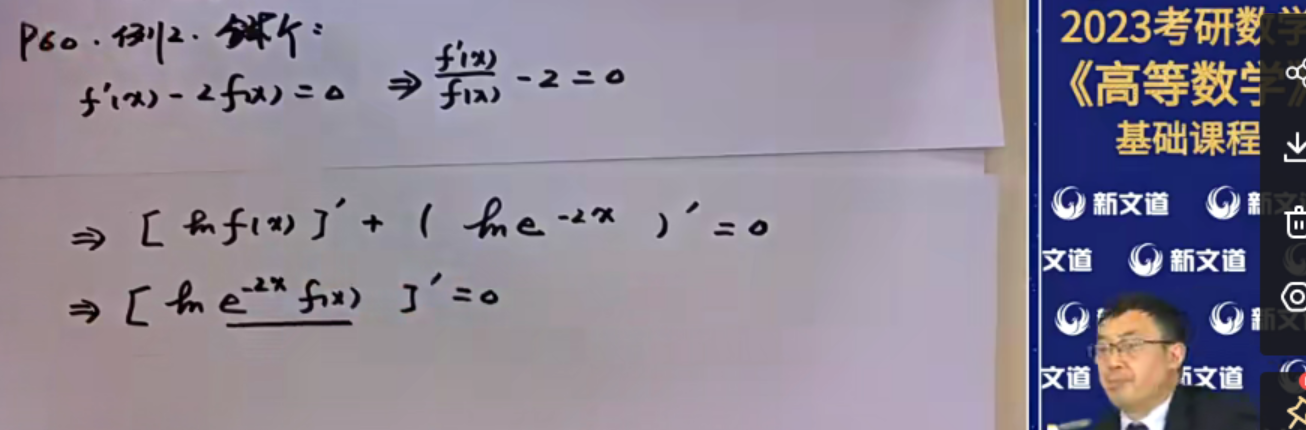 P60. 例2. 分析:
f'(x) - 2f(x) = 0 ⇒ f'(x)/f(x) - 2 = 0
⇒ [ ln f(x) ]' + ( ln e^{-2x} )' = 0
⇒ [ ln e^{-2x} f(x) ]' = 0
2023考研数学
《高等数学》
基础课程
新文道 新
文道 新文道
新文
文道 新文道